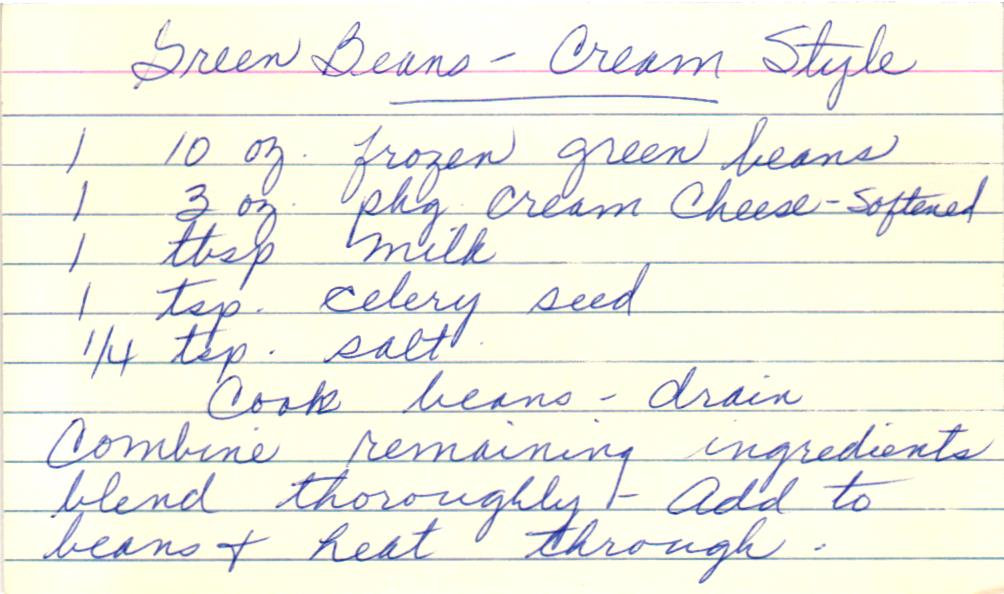 Green Beans - Cream Style
1 10 oz. frozen green beans
1 3 oz. pkg. cream cheese - softened
1 tbsp milk
1 tsp. celery seed
1/4 tsp. salt
Cook beans - drain
Combine remaining ingredients
blend thoroughly - Add to
beans & heat through.